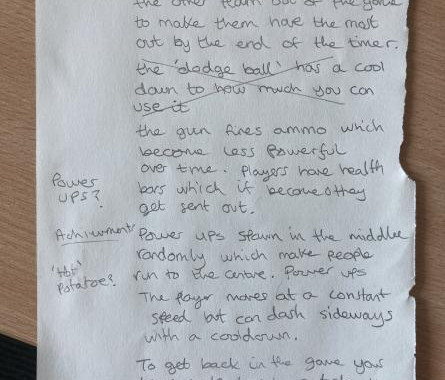 the other team out of the game
to make them have the most
out by the end of the timer.
the 'dodge ball' has a cool
down to how much you can
use it
the gun fires ammo which
become less powerful
over time. Players have health
bars which if becomes they
get sent out.
Power
UPS?
Achievment
Power ups spawn in the middle
randomly which make people
run to the centre. Power ups
'Hot'
Potatoe?
The Player moves at a constant
speed but can dash sideways
with a cooldown.
To get back in the game your